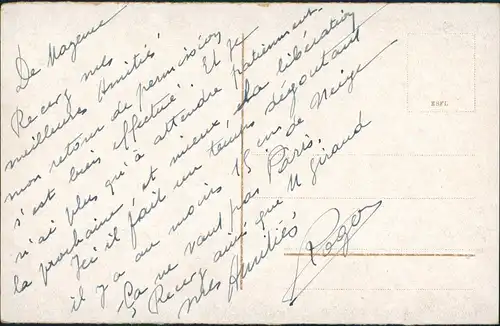 De Mayence
Recevez mes
meilleures Amitiés
mon retour de permission
s'est bien effectué. Et je
n'ai plus qu'à attendre patiemment
la prochaine, et mieux, la libération
Ici il fait un temps dégoutant
il y a au moins 15 cm de Neige
Ça ne vaut pas Paris,
Recevez ainsi que M Giraud
mes Amitiés
Roger
ESFI.